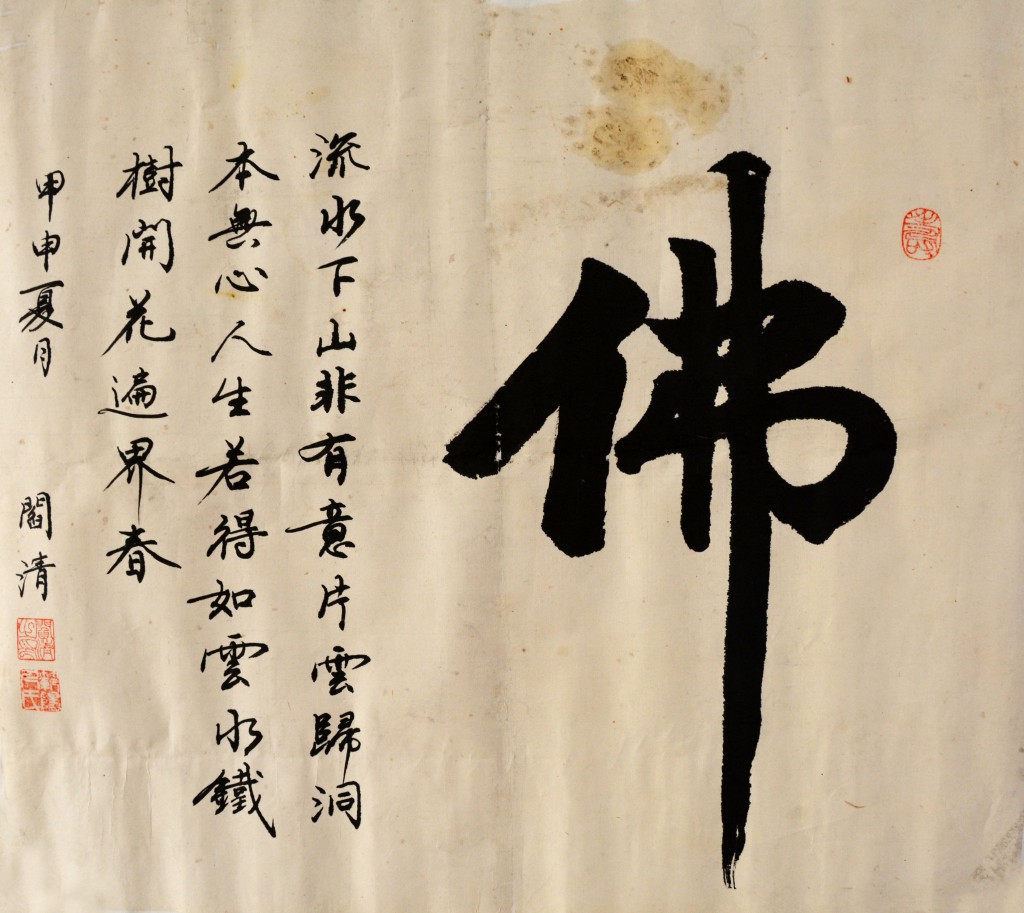 佛
流水下山非有意片雲歸洞
本無心人生若得如雲水鐵
樹開花遍界春
甲申夏月
閻清